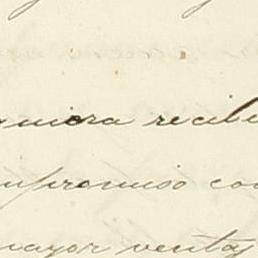 quiera recibi
mpromiso con
mayor ventaj